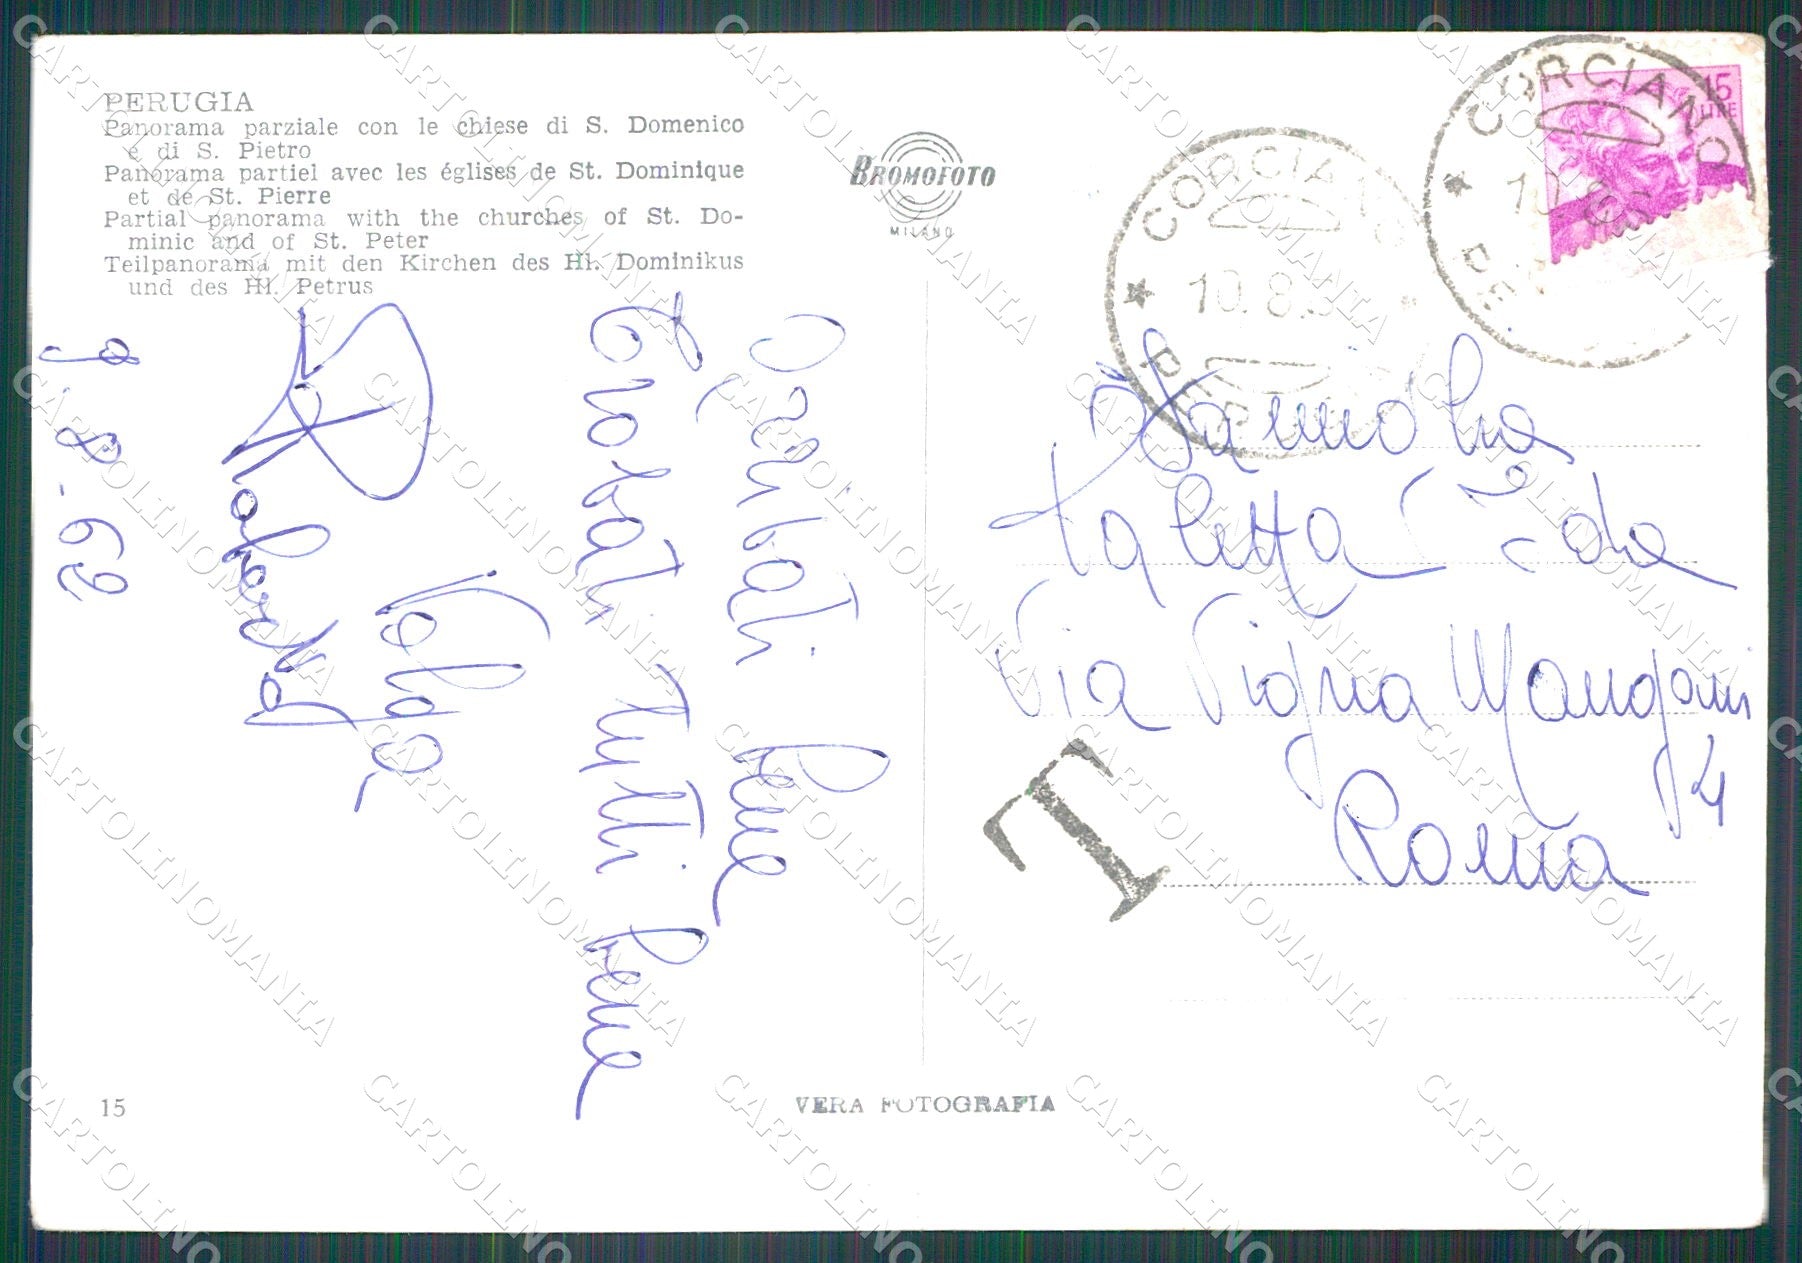 PERUGIA
Panorama parziale con le chiese di S. Domenico
e di S. Pietro
Panorama partiel avec les églises de St. Dominique
et de St. Pierre
Partial panorama with the churches of St. Do-
minic and of St. Peter
Teilpanorama mit den Kirchen des Hl. Dominikus
und des Hl. Petrus
BROMOFOTO
MILANO
CORCIANO
10.8.
CORCIANO
10.8
15
LIRE
Famiglia
Via Vigna Mangani
4
Roma
T
bene
Trovati Tutti bene
9-8-62
15
VERA FOTOGRAFIA
CARTOLINOMANIA